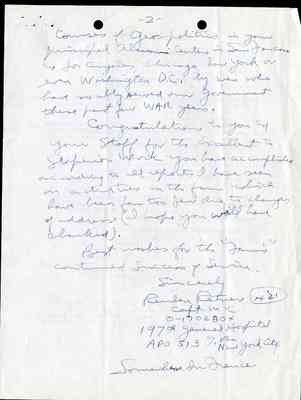 - 2 -
Courses of Geo politics in your
principal Alumni Centers in San Francisco
or Los Angeles, Chicago, New York or
even Washington D.C. by men who
have really served our government
these past few WAR years.
Congratulations to you &
your Staff for the excellent &
superior work you have accomplished
according to all reports I have seen
on activities in the forum which
have been far too few due to changes
of address (I hope you will have
blanked).
Best wishes for the "
continued success & service.
Sincerely
'21
Capt. M.C.
197th General Hospital
APO 513 % P.M.
New York City
Somewhere In France